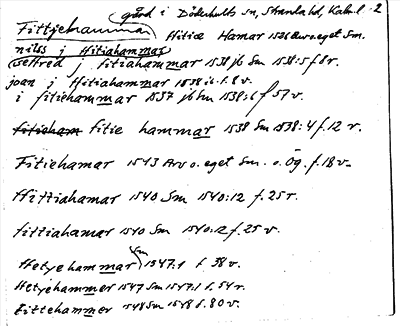 gård i Döderhults sn, Stranda hd, Kalm.l. 2
Fittjehammar Hitiæ Hamar 1526 Arv. eget Sm.
nilss j Hitiahammar
j fittiahammar 1538 jb Sm 1538:5 f 8 r.
joan j Hittiahamar 1538 f. 8 v.
i fitiehammar 1537 jb Sm 1538:6 f 57 v.
fitieham fitie hammar 1538 Sm 1538:4 f. 12 r.
Fitiehamar 1543 Arv o. eget Sm. o. Ög. f. 18 v.
Hittiahamar 1540 Sm 1540:12 f. 25 r.
fittiahamar 1540 Sm 1540:12 f. 25 v.
Hetyehammar Sm 1547:1 f. 38 v.
Hetyehammer 1547 Sm 1547:1 f. 54 r.
Fittehammer 1548 Sm 1548 f. 80 v.